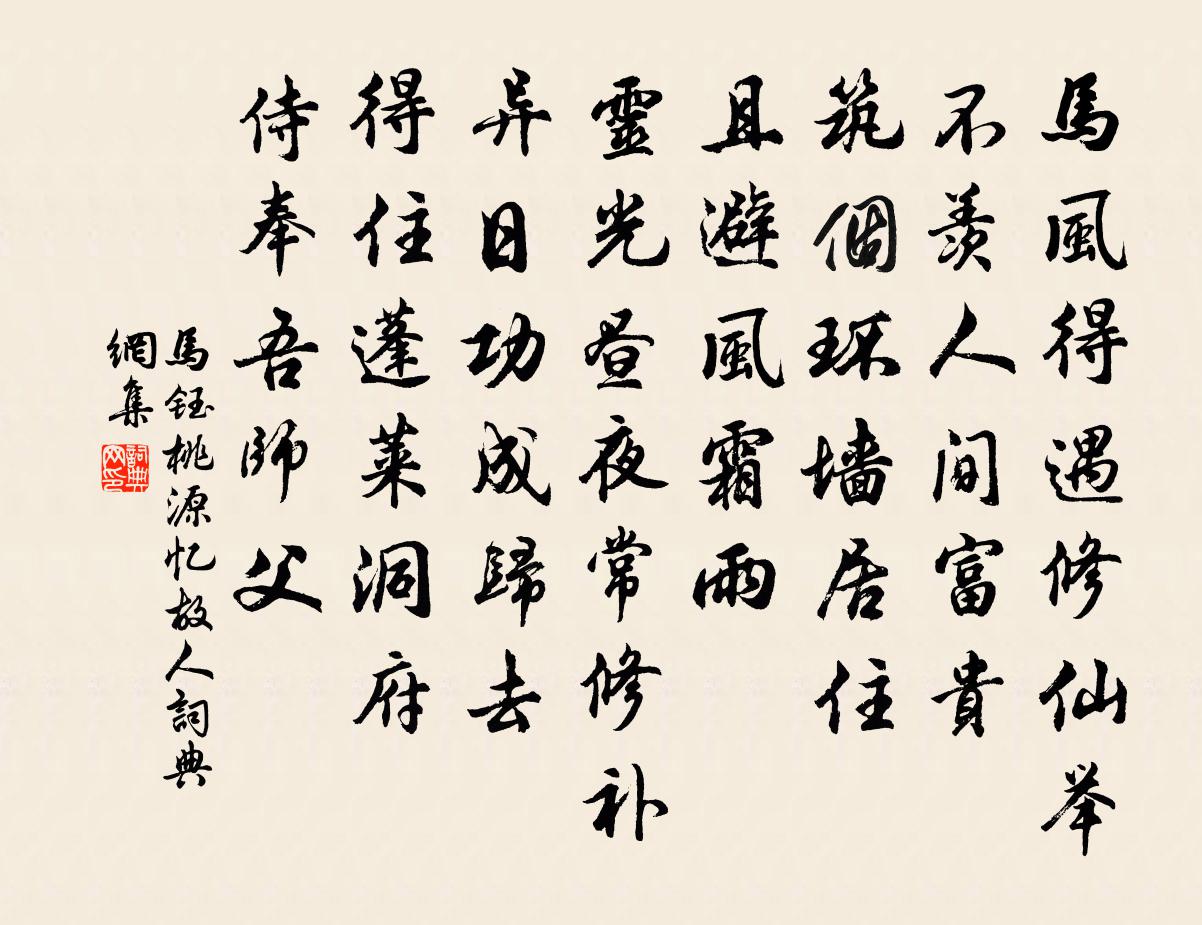 馬風得遇修仙举
不羡人间富貴
筑個环墙居住
且避風霜雨
靈光昼夜常修补
异日功成歸去
得住蓬莱洞府
侍奉吾師父
馬鈺桃源忆故人詞典
網集
詞典
网印